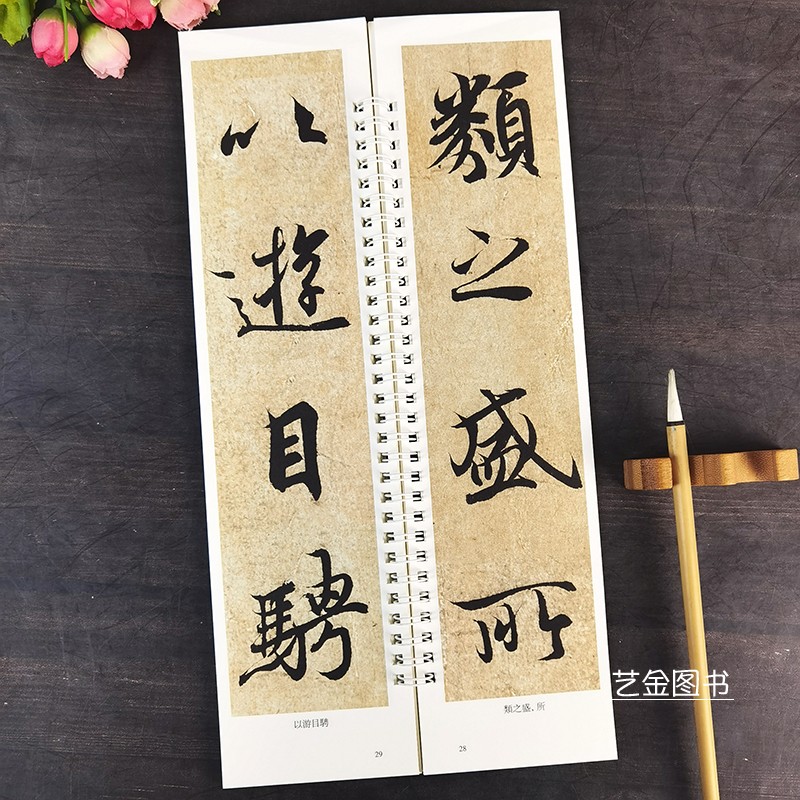 類之盛所
類之盛，所
28
以遊目騁
以游目騁
29
艺金图书